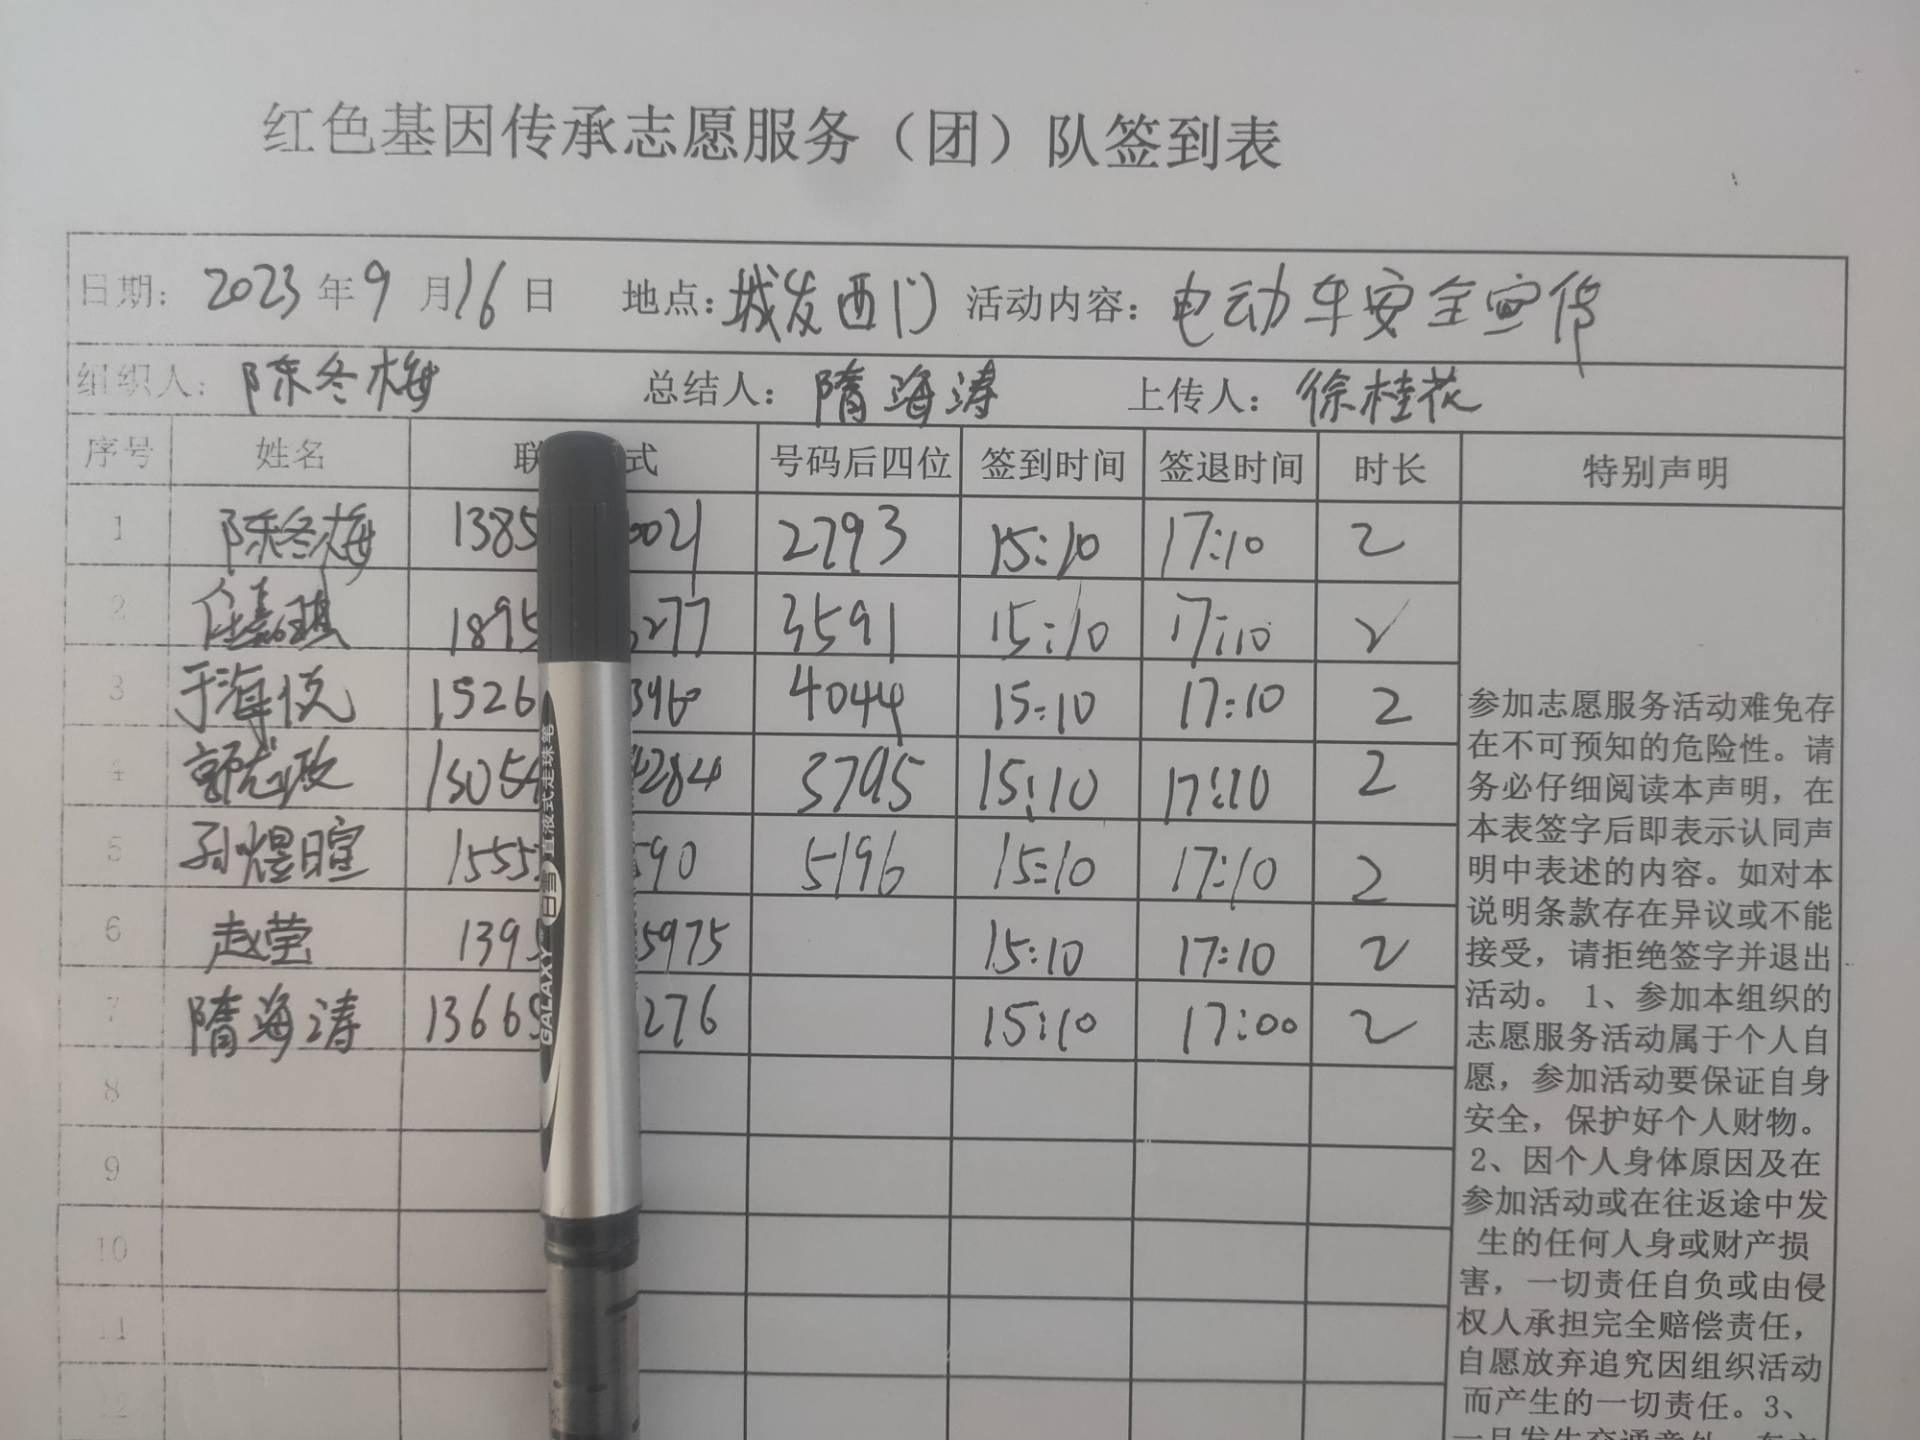 红色基因传承志愿服务（团）队签到表
日期：2023年9月16日 地点：城发西门 活动内容：电动车安全宣传
组织人：陈冬梅 总结人：隋海涛 上传人：徐桂花
序号 姓名 联 式 号码后四位 签到时间 签退时间 时长 特别声明
1 陈冬梅 1385 0021 2793 15:10 17:10 2
2 任嘉琪 1895 277 3591 15:10 17:10 2
3 于海 1526 3960 4044 15:10 17:10 2
4 郭 1505 4284 3795 15:10 17:10 2
5 孙煜暄 1555 590 5196 15:10 17:10 2
6 赵莹 139 5975 15:10 17:10 2
7 隋海涛 1366 276 15:10 17:00 2
8
9
10
11
12
参加志愿服务活动难免存
在不可预知的危险性。请
务必仔细阅读本声明，在
本表签字后即表示认同声
明中表述的内容。如对本
说明条款存在异议或不能
接受，请拒绝签字并退出
活动。 1、参加本组织的
志愿服务活动属于个人自
愿，参加活动要保证自身
安全，保护好个人财物。
2、因个人身体原因及在
参加活动或在往返途中发
生的任何人身或财产损
害，一切责任自负或由侵
权人承担完全赔偿责任，
自愿放弃追究因组织活动
而产生的一切责任。3、
一旦发生交通意外
直液式走珠笔
GALAXY